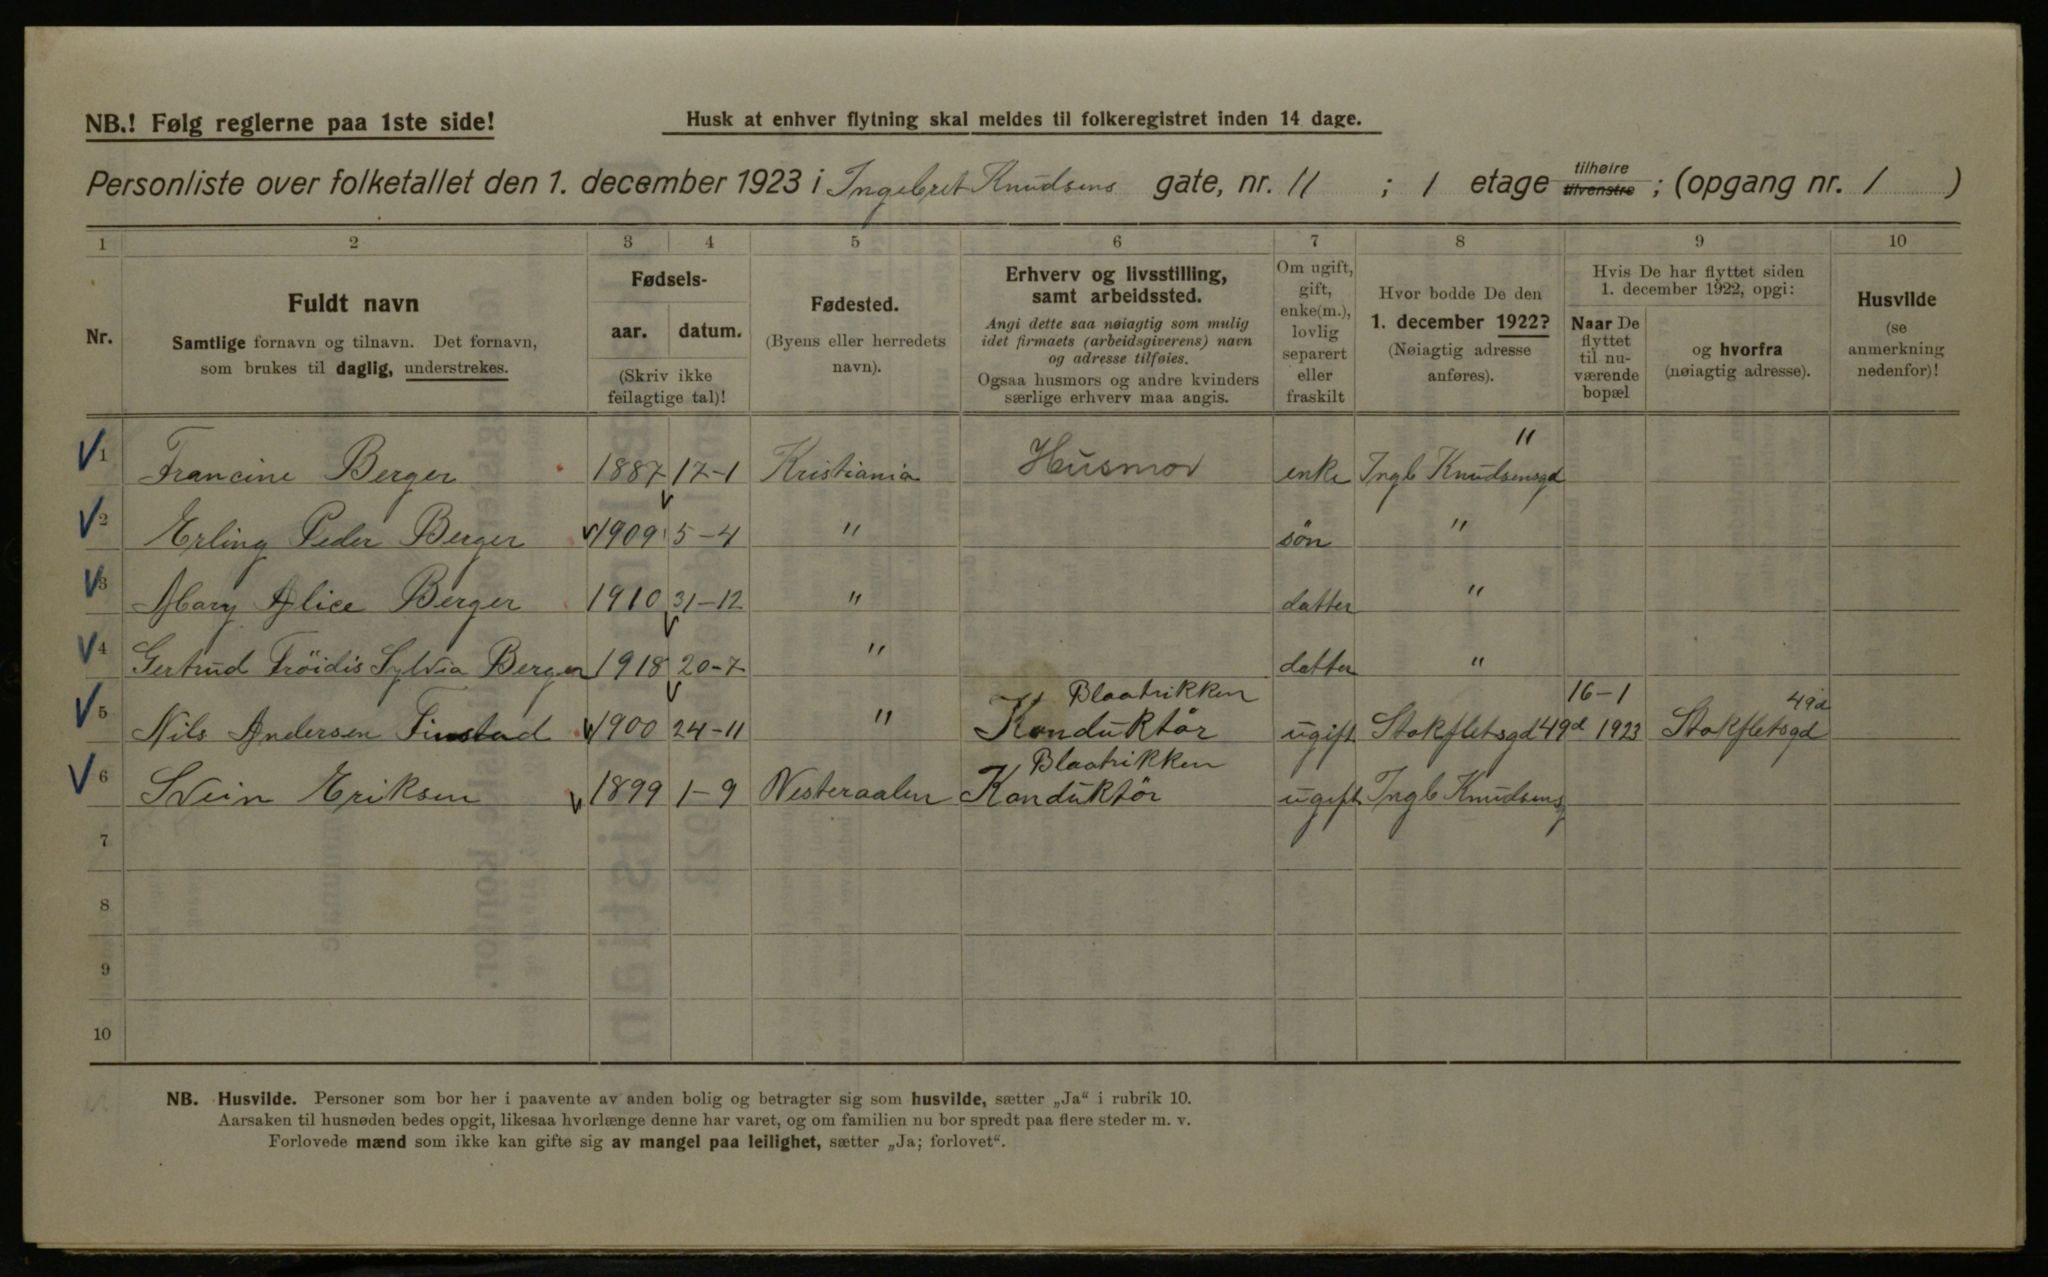 NB.! Følg reglerne paa 1ste side!
Husk at enhver flytning skal meldes til folkeregistret inden 14 dage.
Personliste over folketallet den 1. december 1923 i Ingebret Knudsens gate, nr. 11 ; 1 etage tilhøire tilvenstre ; (opgang nr. 1 )
1 2 3 4 5 6 7 8 9 10
Nr.
Fuldt navn
Samtlige fornavn og tilnavn. Det fornavn,
som brukes til daglig, understrekes.
Fødsels-
aar. datum.
(Skriv ikke
feilagtige tal)!
Fødested.
(Byens eller herredets
navn).
Erhverv og livsstilling,
samt arbeidssted.
Angi dette saa nøiagtig som mulig
idet firmaets (arbeidsgiverens) navn
og adresse tilføies.
Ogsaa husmors og andre kvinders
særlige erhverv maa angis.
Om ugift,
gift,
enke(m.),
lovlig
separert
eller
fraskilt
Hvor bodde De den
1. december 1922?
(Nøiagtig adresse
anføres).
Hvis De har flyttet siden
1. december 1922, opgi:
Naar De
flyttet
til nu-
værende
bopæl
og hvorfra
(nøiagtig adresse).
Husvilde
(se
anmerkning
nedenfor)!
1 Francine Berger 1887 17-1 Kristiania Husmor enke Ingb Knudsensgd 11
2 Erling Peder Berger 1909 5-4 " søn "
3 Mary Alice Berger 1910 31-12 " datter "
4 Gertrud Fröidis Sylvia Berger 1918 20-7 " datter "
5 Nils Andersen Finstad 1900 24-11 " Blaatrikken Konduktör ugift Stokfletsgd 49d 16-1 1923 Stokfletsgd 49d
6 Svein Eriksen 1899 1-9 Vesteraalen Blaatrikken Konduktör ugift Ingb Knudsensg
7
8
9
10
NB. Husvilde. Personer som bor her i paavente av anden bolig og betragter sig som husvilde, sætter „Ja" i rubrik 10.
Aarsaken til husnøden bedes opgit, likesaa hvorlænge denne har varet, og om familien nu bor spredt paa flere steder m. v.
Forlovede mænd som ikke kan gifte sig av mangel paa leilighet, sætter „Ja; forlovet".